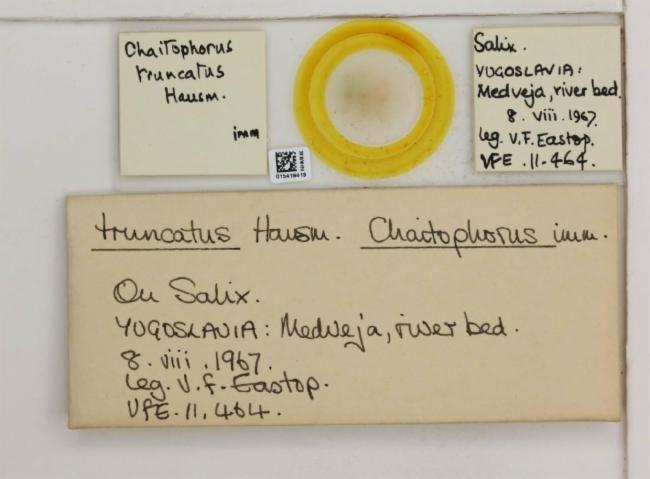 Chaitophorus
truncatus
Hausm.
imm
015419419
Salix.
YUGOSLAVIA:
Medveja, river bed.
8. viii. 1967.
leg. V.F. Eastop.
VFE .11.464.
truncatus Hausm. Chaitophorus imm.
On Salix.
YUGOSLAVIA: Medveja, river bed.
8. viii. 1967.
leg. V.F. Eastop.
VFE. 11. 464.